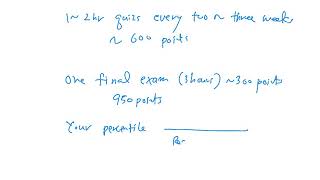 1 ~ 2hr quizs every two ~ three weeks
~ 600 points
One final exam (3hours) ~300 points
950 points
Your percentile